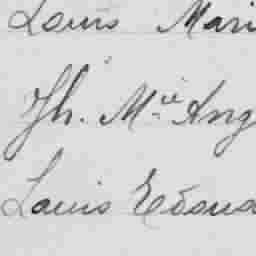 Louis Mari
Jh. Mie Ang
Louis Edoua